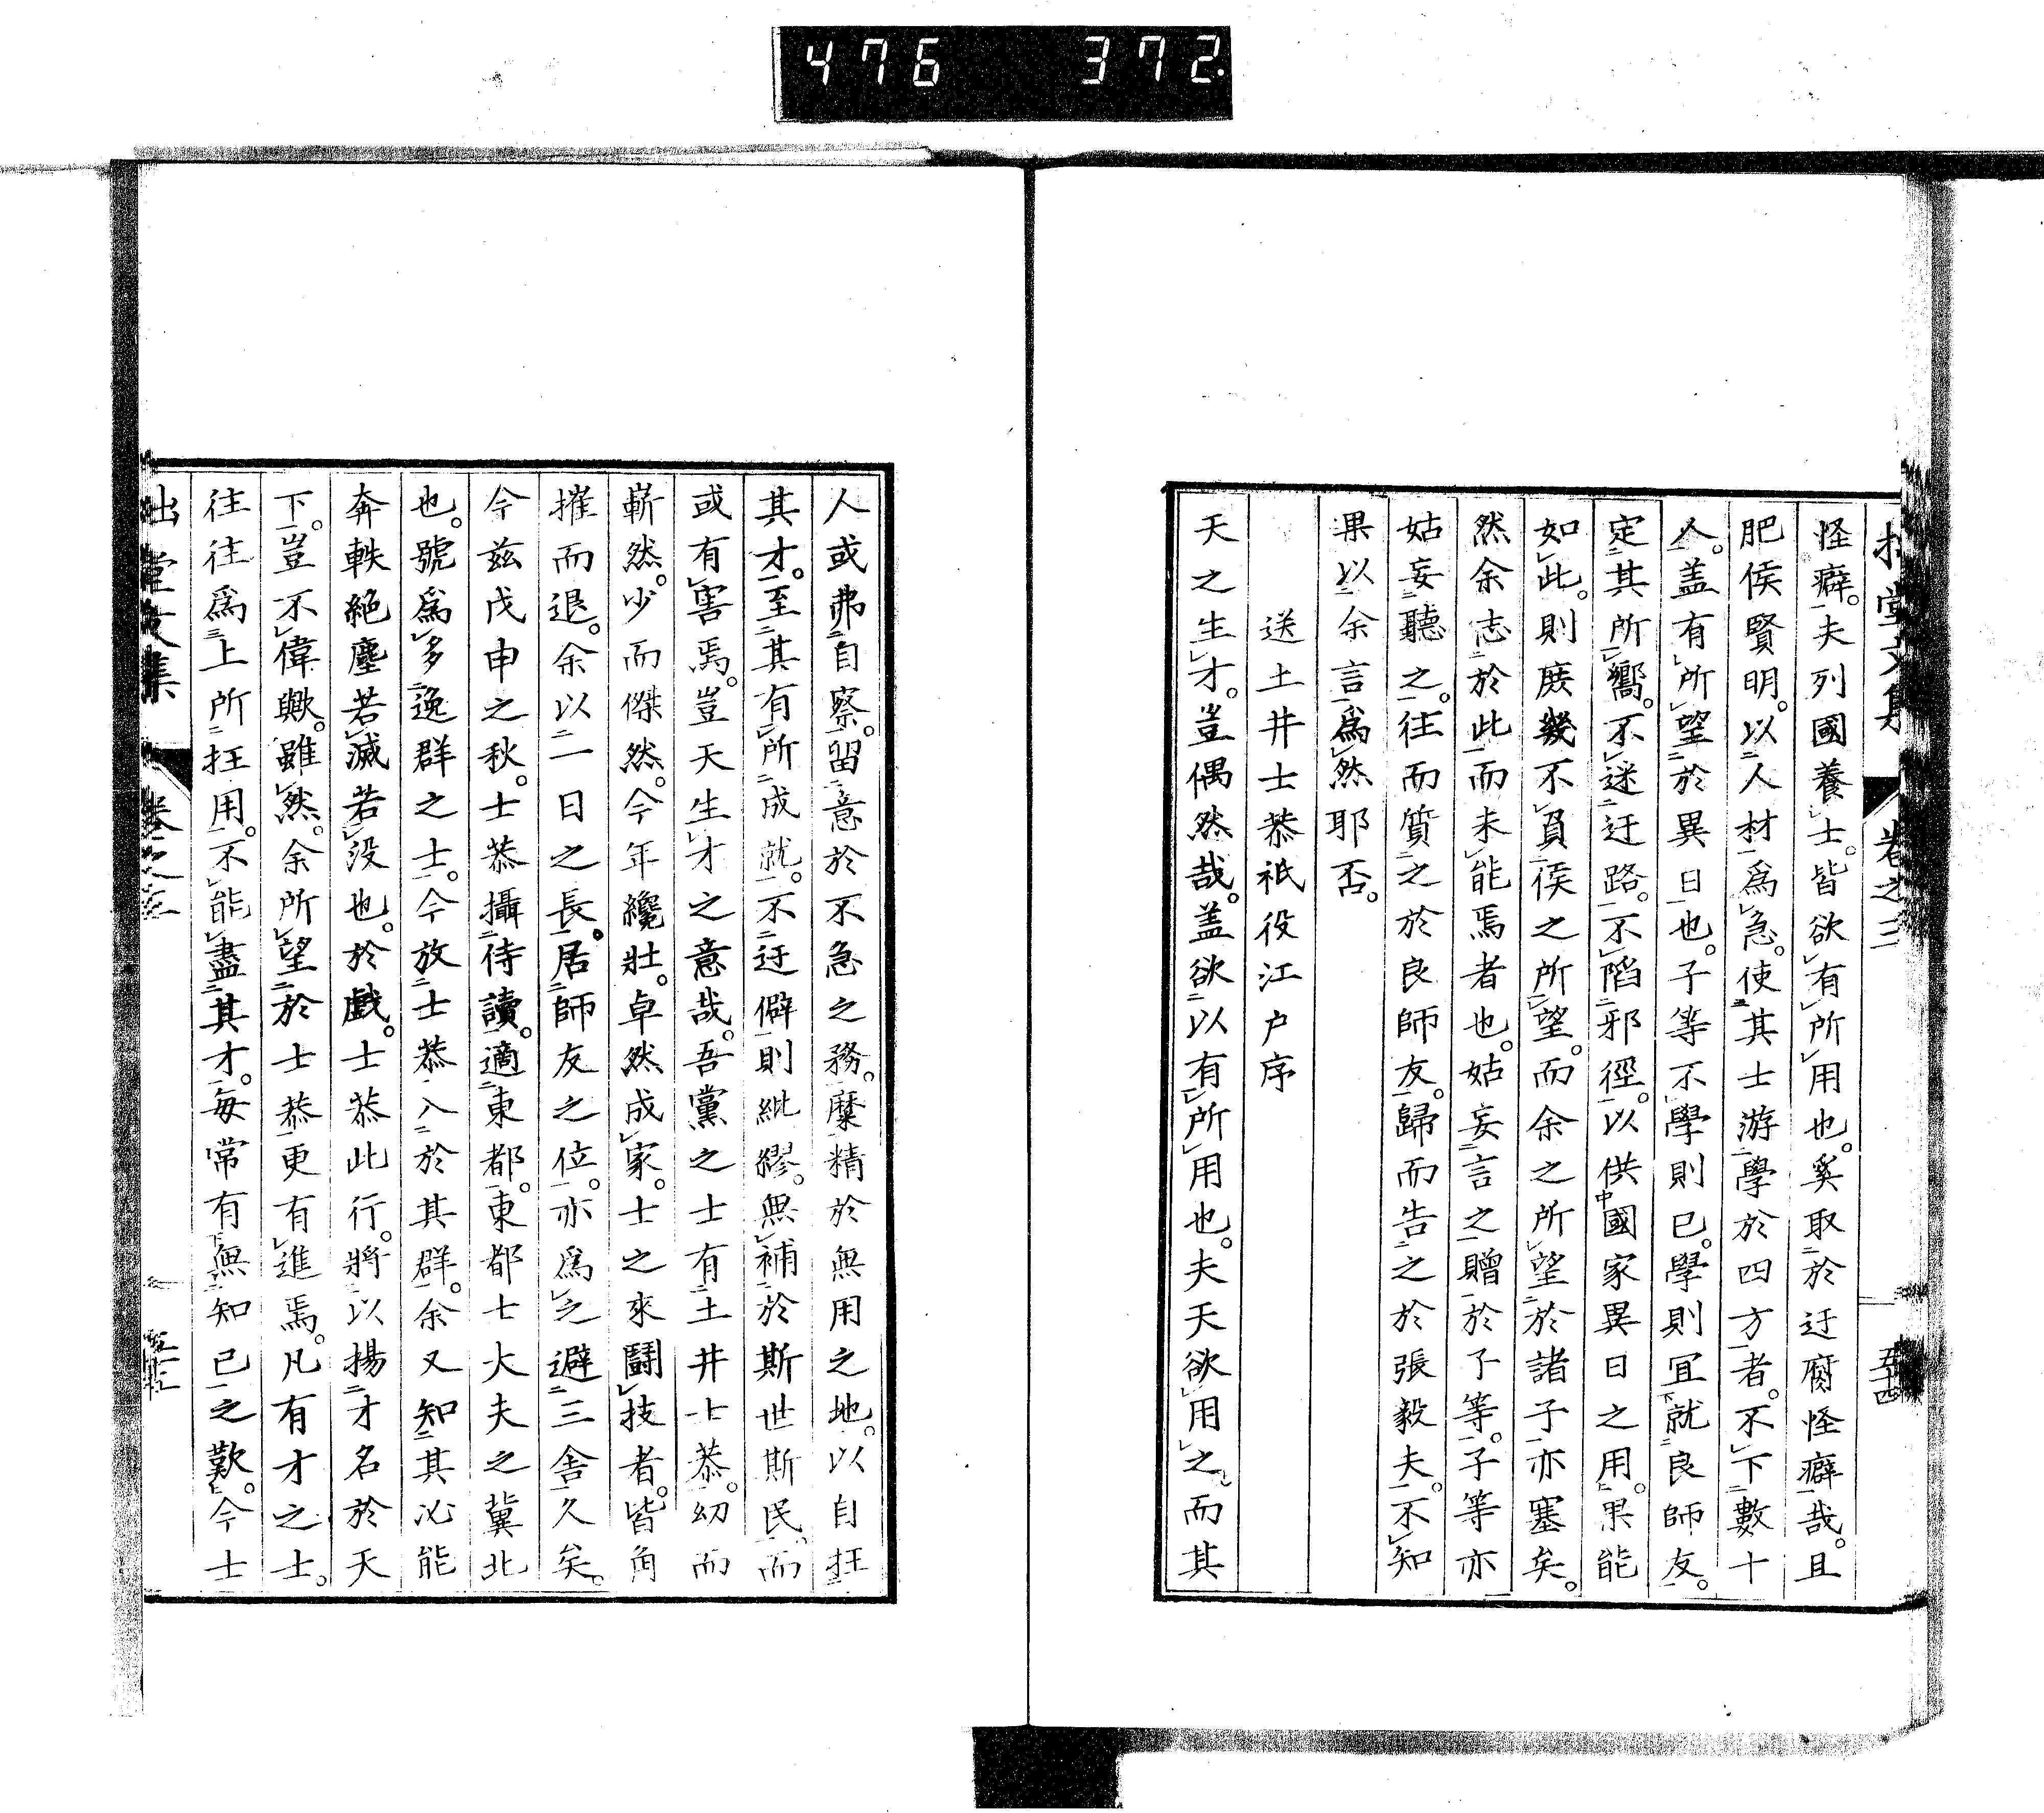 476 372
拙堂文集 卷之三 五十四
怪癖。夫列國養士。皆欲有所用也。奚取於迂腐怪癖哉。且
肥侯賢明。以人材爲急。使其士游學於四方者。不下數十
人。盖有所望於異日也。子等不學則已。學則冝就良師友。
定其所嚮。不迷迂路。不陷邪徑。以供國家異日之用。果能
如此。則庶幾不負侯之所望。而余之所望於諸子亦塞矣。
然余志於此而未能焉者也。姑妄言之贈於子等。子等亦
姑妄聽之。往而質之於良師友。歸而告之於張毅夫。不知
果以余言爲然耶否。
送土井士恭祇役江户序
天之生才。豈偶然哉。盖欲以有所用也。夫天欲用之。而其
人或弗自察。留意於不急之務。糜精於無用之地。以自抂
其才。至其有所成就。不迂僻則紕繆。無補於斯世斯民。而
或有害焉。豈天生才之意哉。吾黨之士有土井士恭。幼而
嶄然。少而傑然。今年纔壯。卓然成家。士之來鬪技者。皆角
摧而退。余以一日之長。居師友之位。亦爲之避三舎久矣。
今兹戊申之秋。士恭攝侍讀。適東都。東都士大夫之冀北
也。號爲多逸群之士。今放士恭入於其群。余又知其必能
奔軼絕塵若滅若没也。於戲。士恭此行。將以揚才名於天
下。豈不偉歟。雖然。余所望於士恭更有進焉。凡有才之士。
往往爲上所抂用。不能盡其才。毎常有無知已之歎。今士
拙堂文集 卷之三 五十五